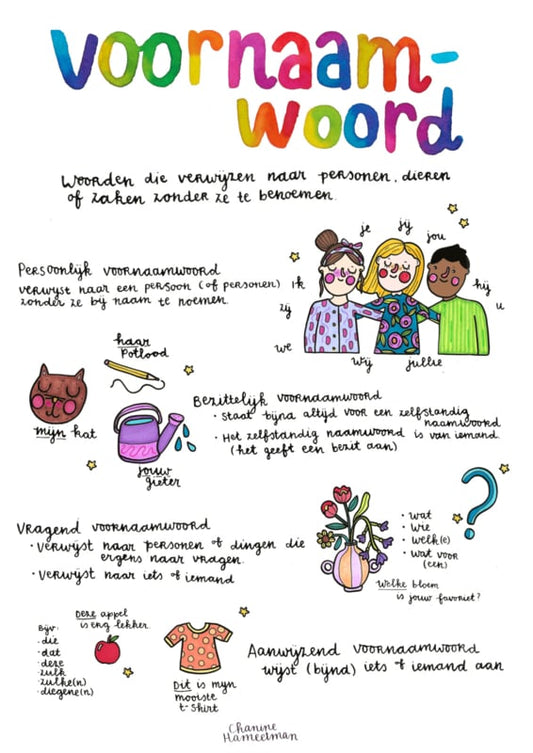 voornaam-
woord
Woorden die verwijzen naar personen, dieren
of zaken zonder ze te benoemen.
je
jij
jou
Persoonlijk voornaamwoord
verwijst naar een persoon (of personen)
zonder ze bij naam te noemen.
ik
hij
zij
u
we
wij
jullie
haar
Potlood
mijn kat
jouw
gieter
Bezittelijk voornaamwoord
• Staat bijna altijd voor een zelfstandig
naamwoord
• Het zelfstandig naamwoord is van iemand
(het geeft een bezit aan)
Vragend voornaamwoord
• Verwijst naar personen of dingen die
ergens naar vragen.
• Verwijst naar iets of iemand
• wat
• wie
• welk(e)
• wat voor
(een)
Welke bloem
is jouw favoriet?
Deze appel
is erg lekker.
Bijv:
• die
• dat
• deze
• zulk
• zulke(n)
• diegene(n)
Dit is mijn
mooiste
t-shirt
Aanwijzend voornaamwoord
wijst (bijna) iets of iemand aan
Chanine
Hameetman